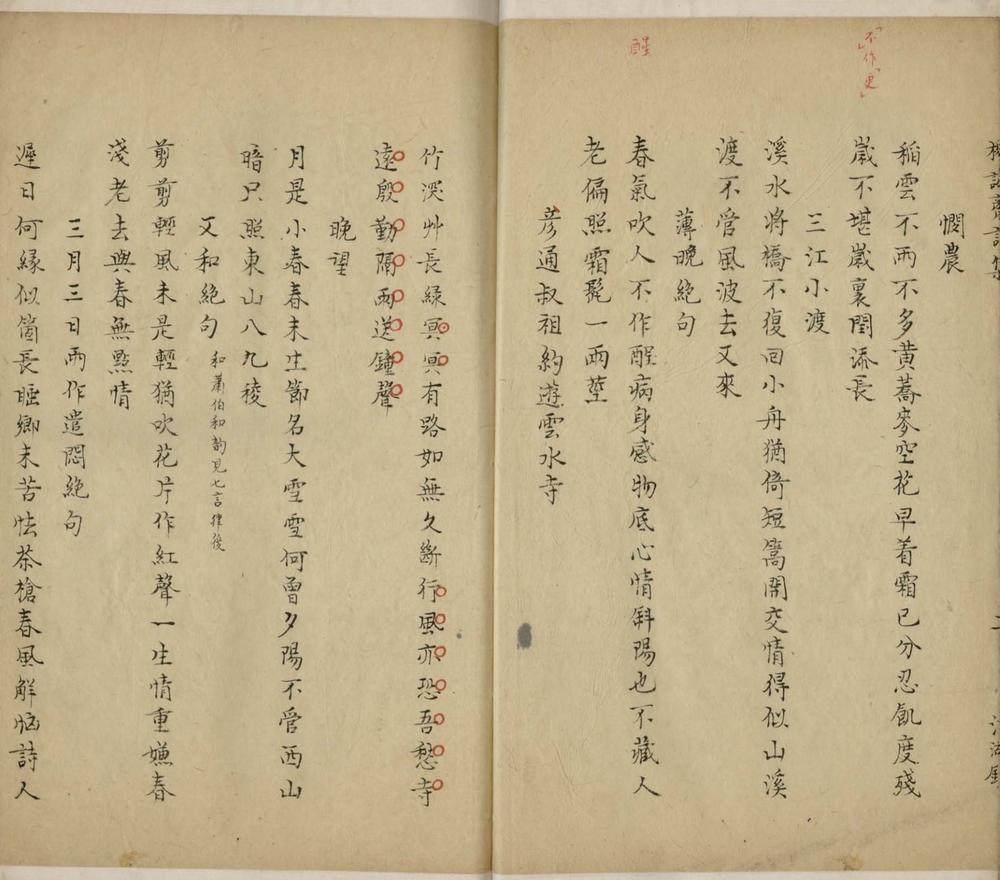 不作更
醒
憫農
稻雲不雨不多黄蕎麥空花早着霜已分忍飢度殘
歲不堪歲裏閏添長
三江小渡
溪水將橋不復回小舟猶倚短篙開交情得似山溪
渡不管風波去又來
薄晚絶句
春氣吹人不作醒病身感物底心情斜陽也不藏人
老偏照霜髭一兩莖
彦通叔祖約遊雲水寺
竹深艸長緑冥冥有路如無久斷行風亦恐吾愁寺
遠殷勤隔雨送鐘聲
晚望
月是小春春未生節名大雪雪何曾夕陽不管西山
暗只照東山八九稜
又和絶句 和蕭伯和韵見七言律後
剪剪輕風未是輕猶吹花片作紅聲一生情重嫌春
淺老去與春無㸃情
三月三日雨作遣悶絶句
遲日何緣似箇長睡鄉未苦怯茶槍春風解惱詩人